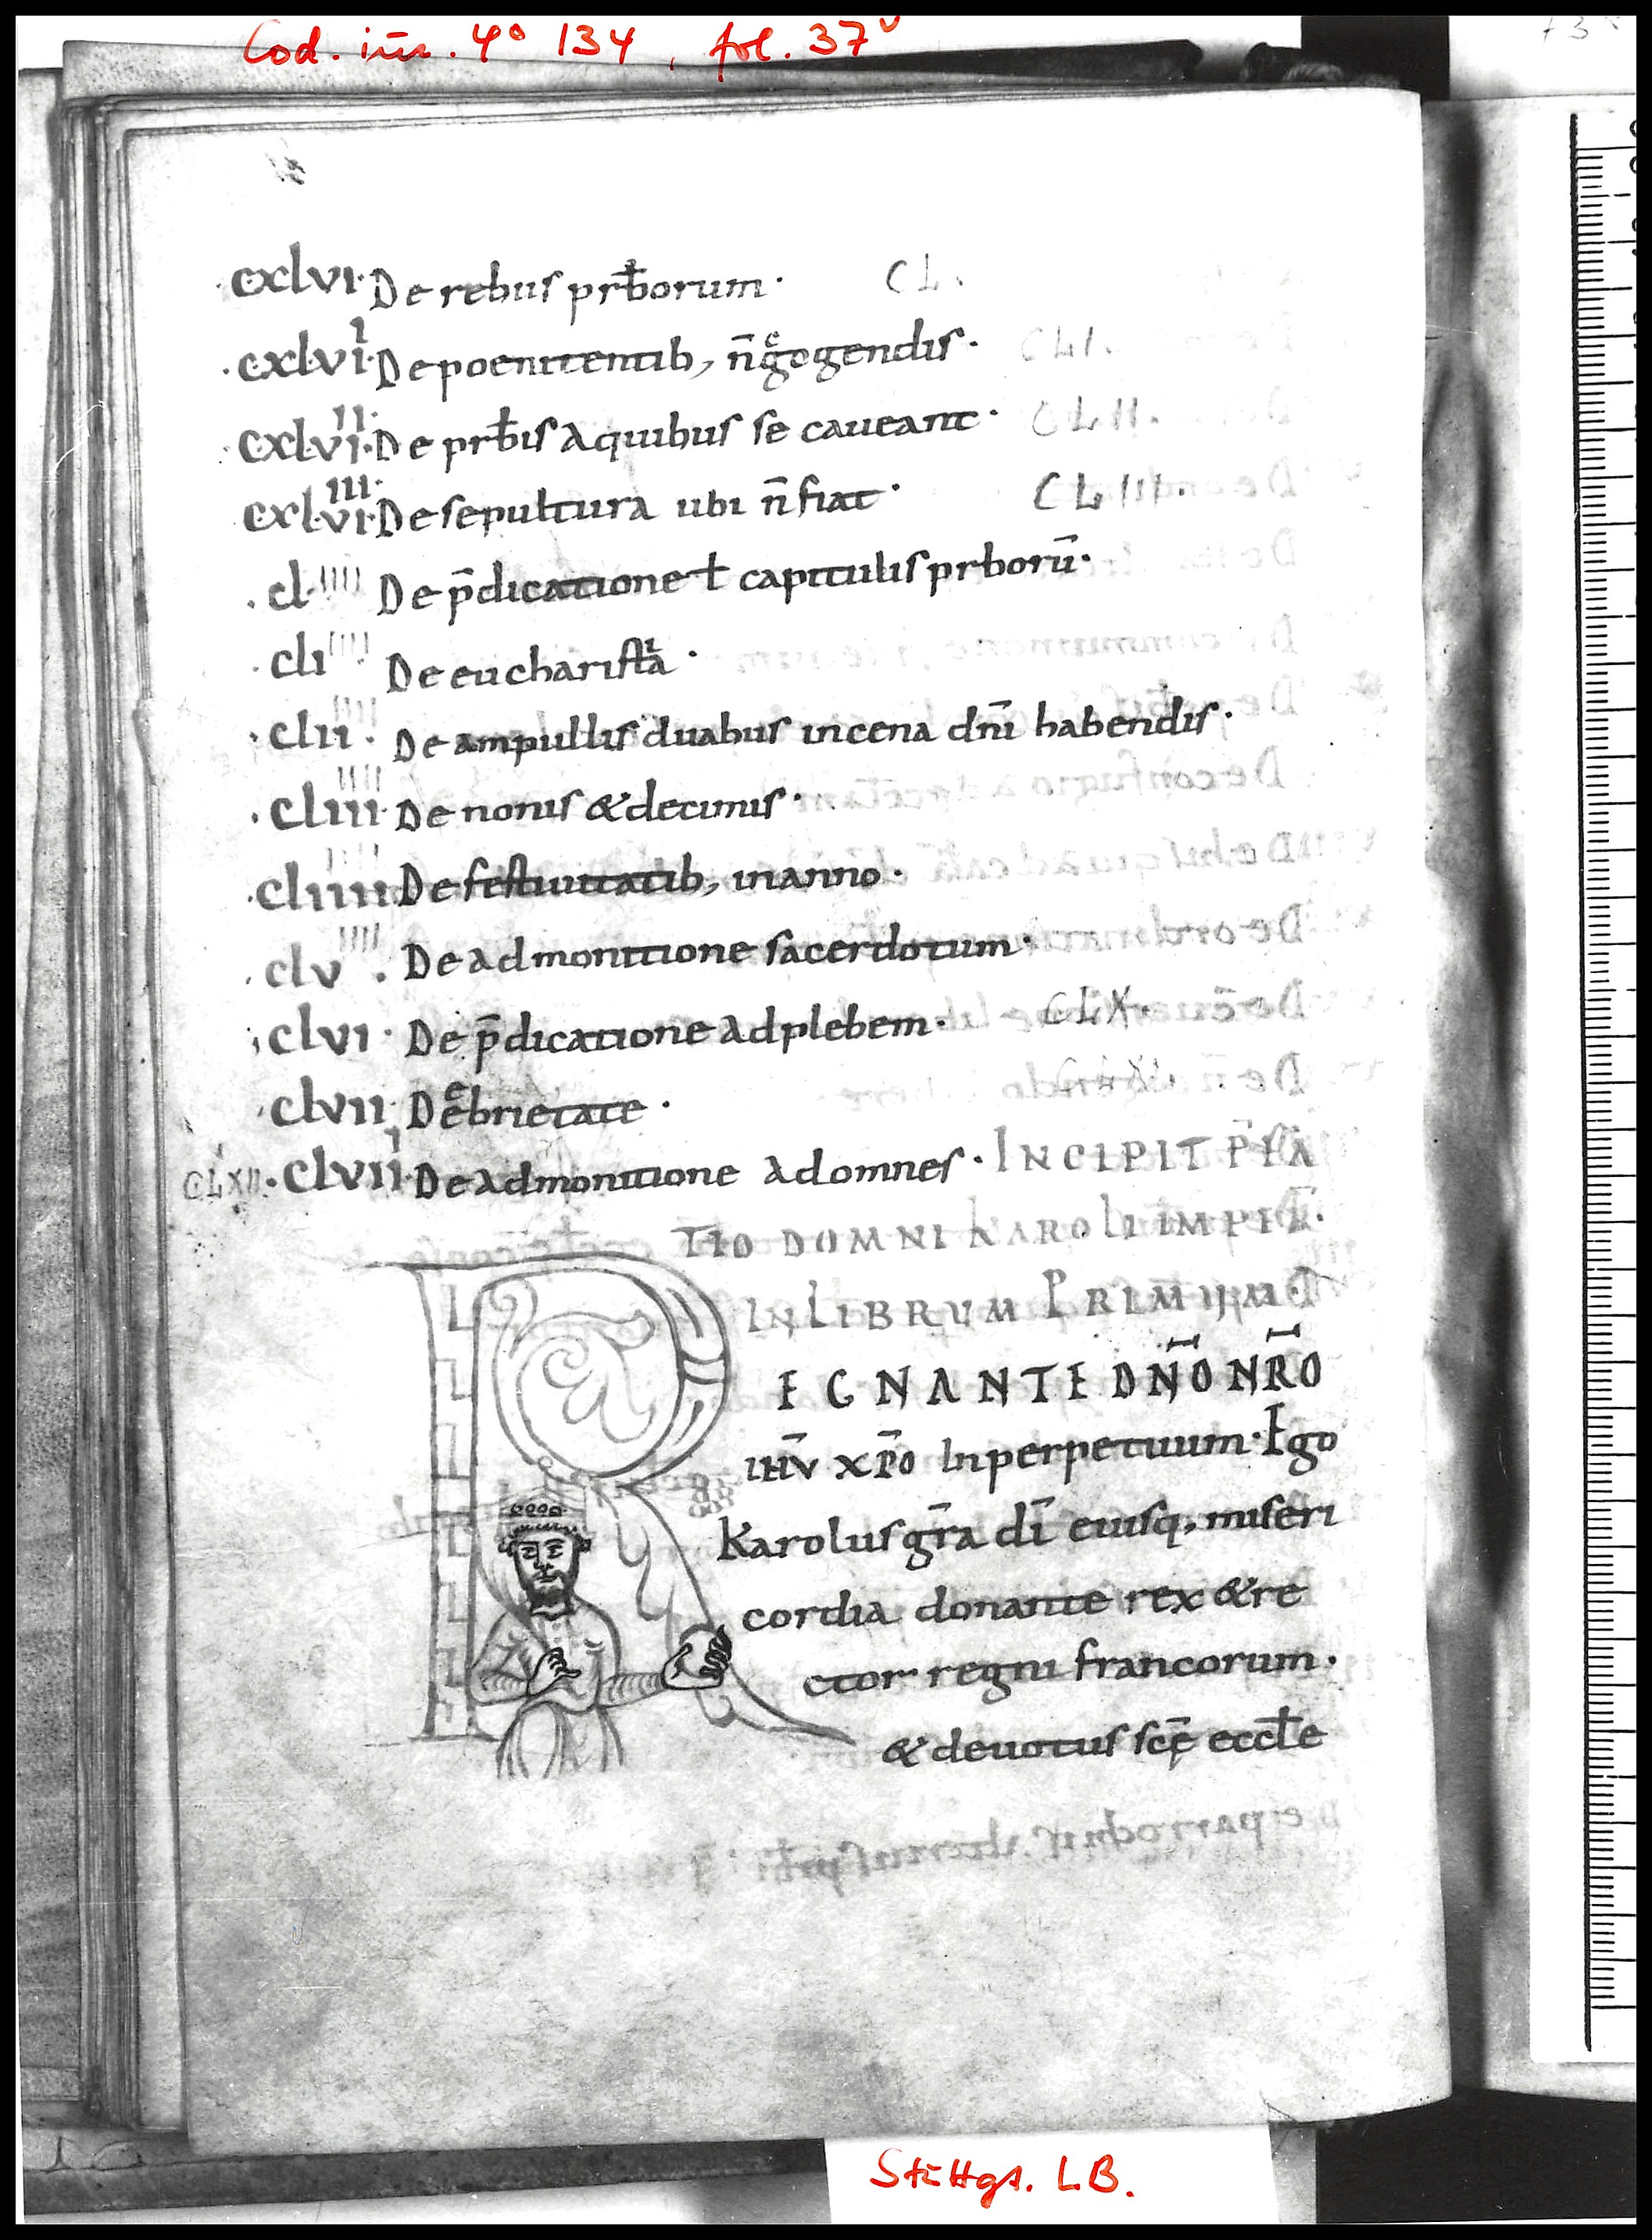 Cod. iur. 4° 134, fol. 37v
·cxlvi· De rebus prƀorum· CL.
·cxlvi·ı De poenitentib; n̄ gͤogendis· CLI.
·cxlvi·ıı· De prƀis a quibus se caueant· CLII.
cxlvi·ııı· De sepultura ubi n̄ fiat· CLIII.
·cl·ıııı De p̄dicatione ł capitulis prborū·
·cli·ıııı De eucharistıa·
·clii·ıııı De ampullis duabus in cena dn̄i habendis·
·cliii·ıııı De nonis & decimis·
·cliiii·ıııı De festiuitatib; in anno·
·clv·ıııı De admonitione sacerdotum·
·clvi· De p̄dicatione ad plebem· CLX.
·clvii Deͤbrietate·
CLXII. ·clvii·ı De admonitione ad omnes· INCIPIT P̄FA
TIO DOMNI KAROLI IMPIT̄·
IN LIBRUM PRIMUM·
REGNANTE DN̄O NR̄O
IHV̄ XP̄O In perpetuum· Ego
Karolus gr̄a dī eiusq; miseri
cordia donante rex & re
ctor regni francorum·
& deuotus sc̄ę eccłe
Stuttga. LB.